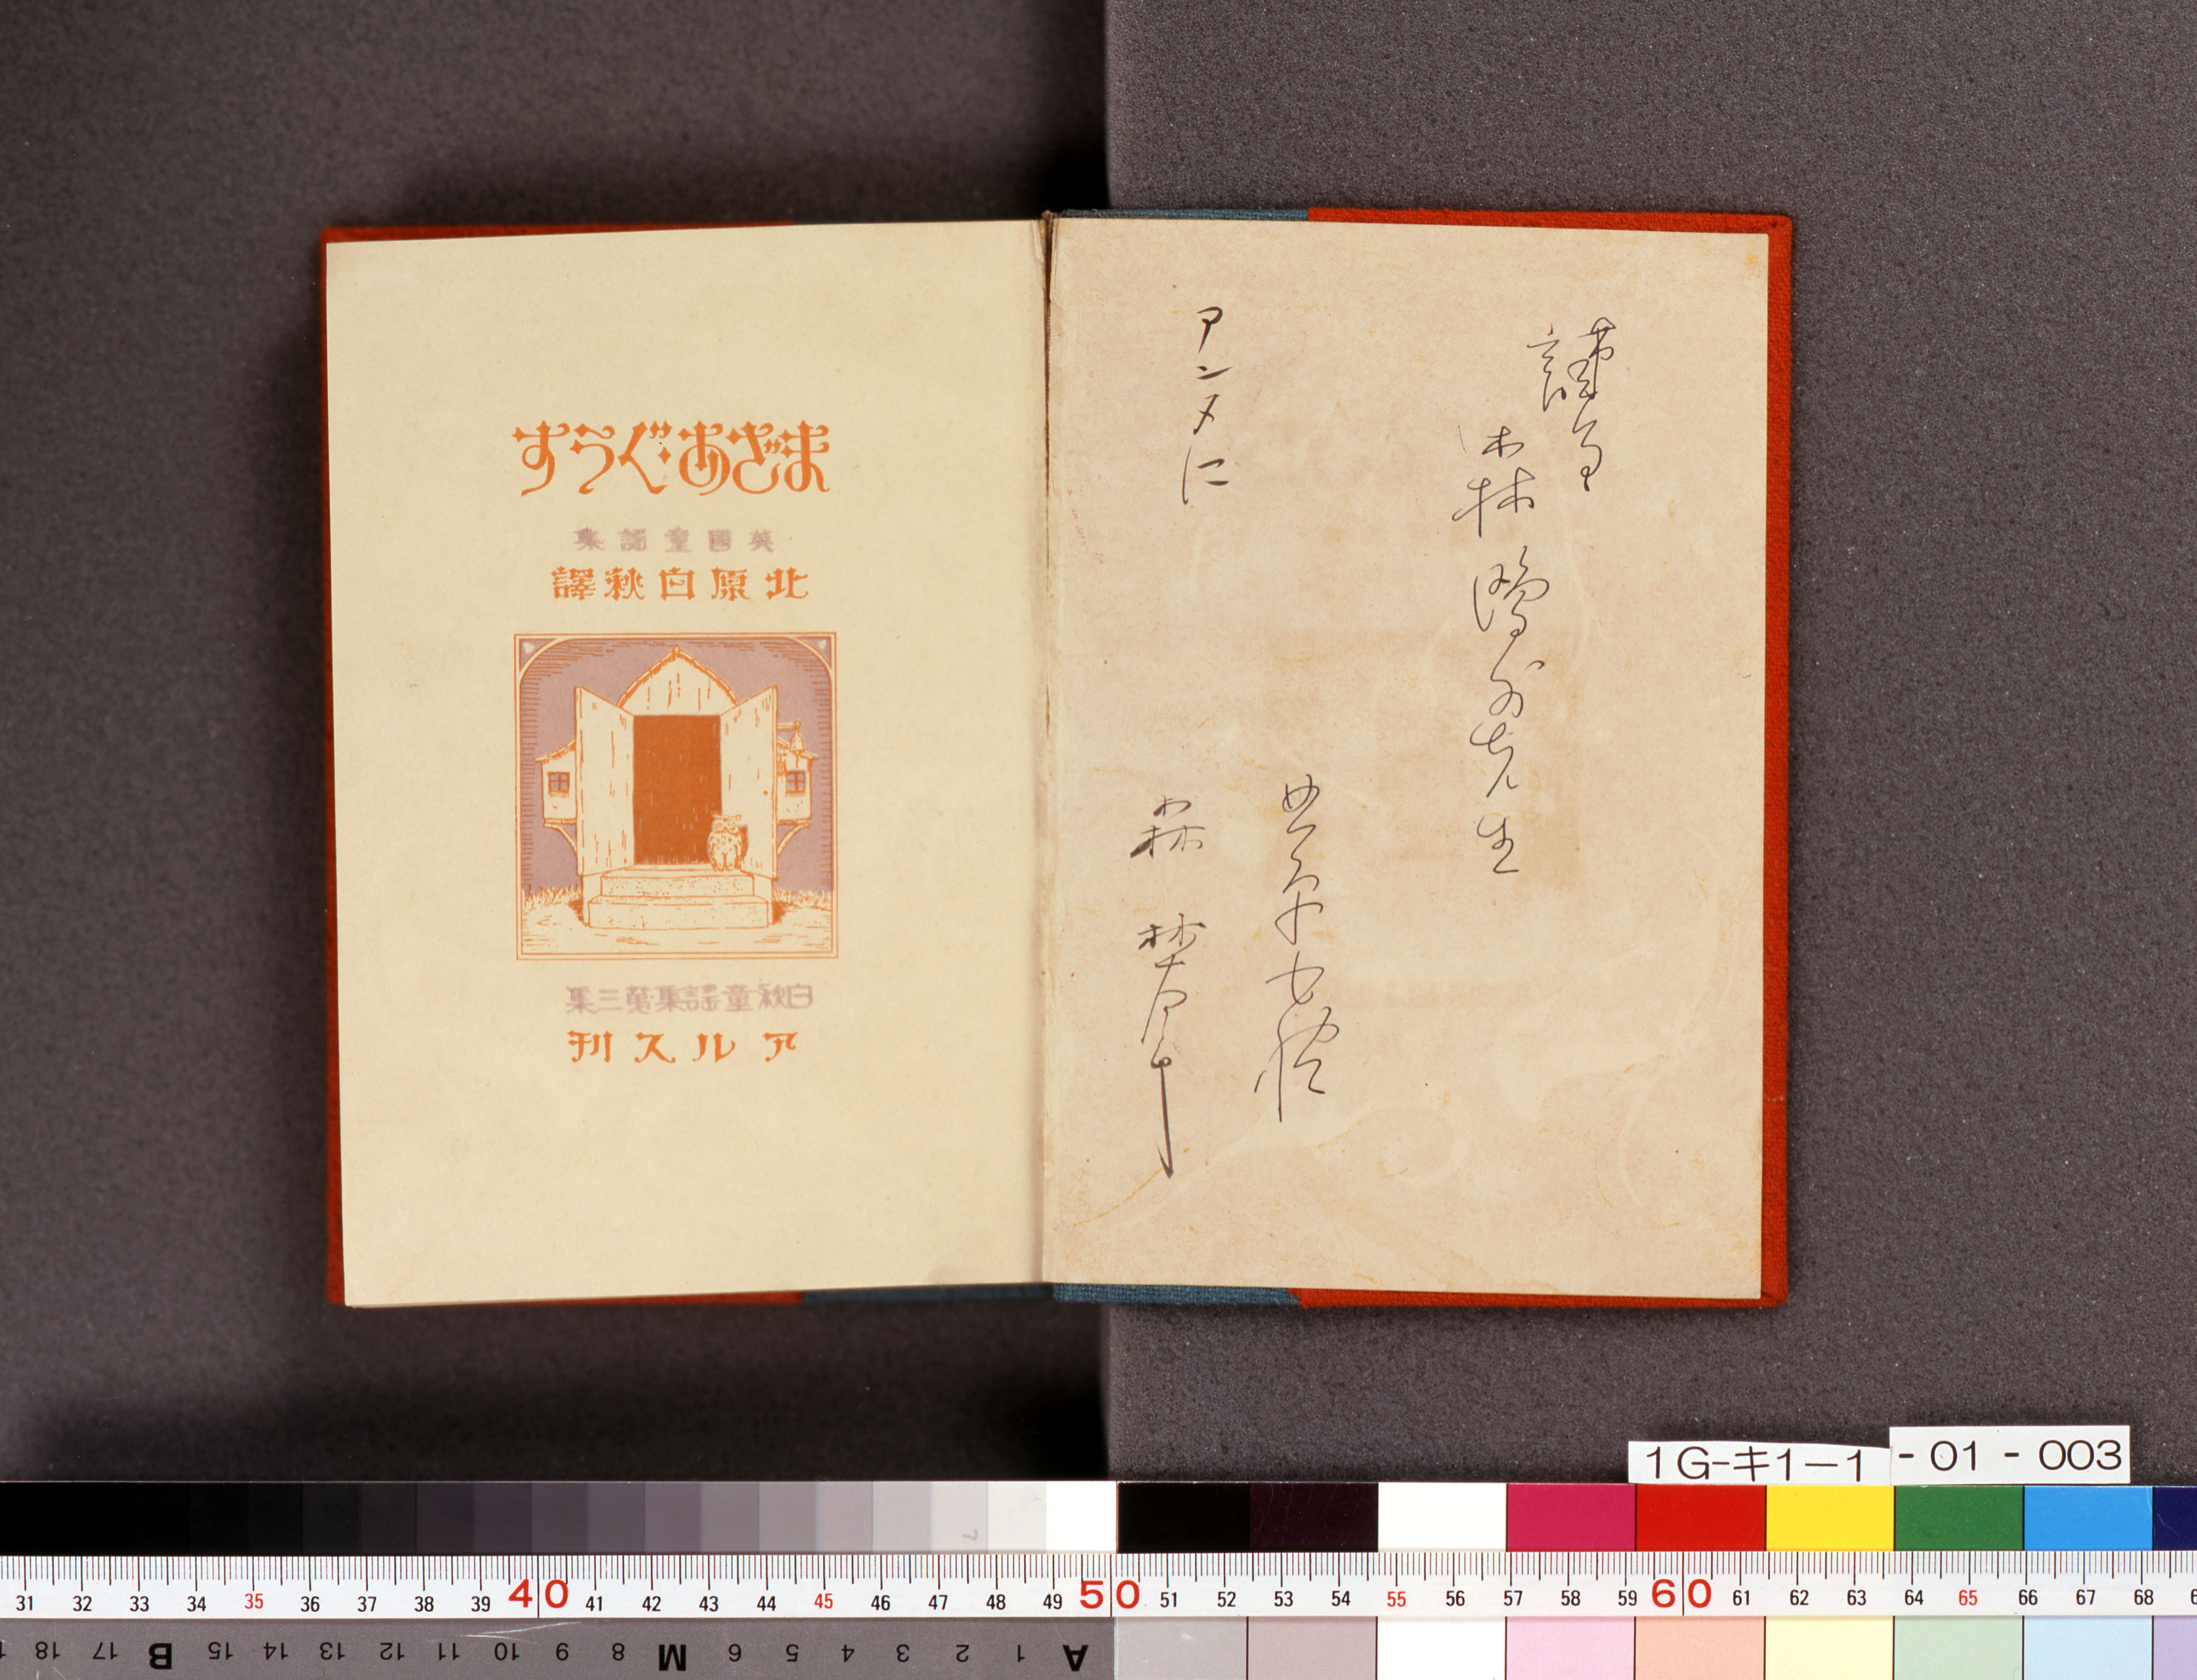 謹呈
森鷗外先生
北原白秋
アンヌに
森林太郎
まざあ・ぐうす
英國童謠集
北原白秋譯
白秋童謠集第三集
アルス刊
1G-キ1-1 -01-003
31 32 33 34 35 36 37 38 39 40 41 42 43 44 45 46 47 48 49 50 51 52 53 54 55 56 57 58 59 60 61 62 63 64 65 66 67 68
A 1 2 3 4 5 6 M 8 9 10 11 12 13 14 15 B 17 18